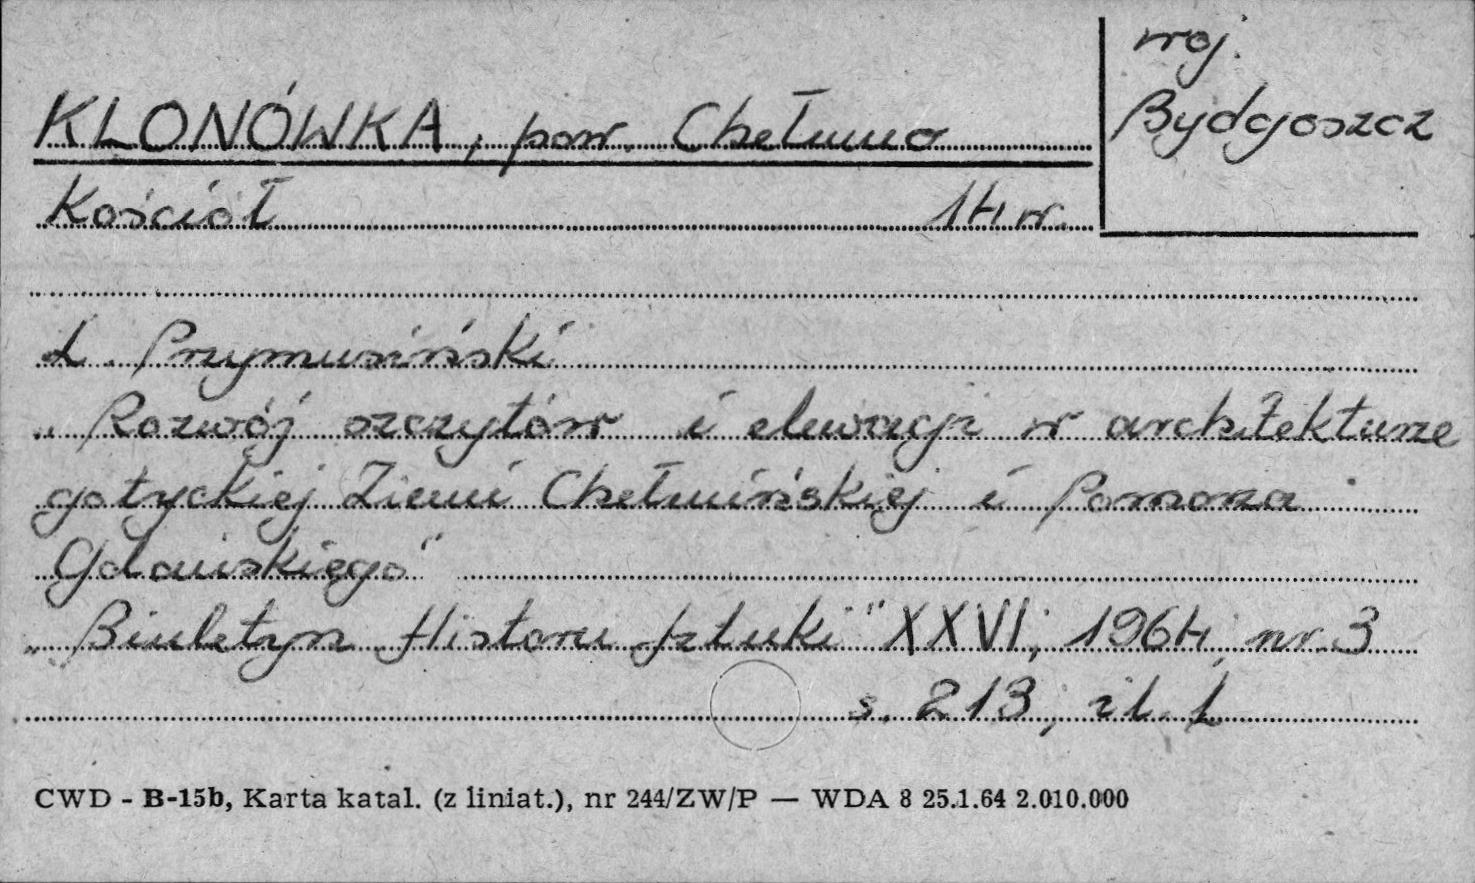 woj.
Bydgoszcz
KLONÓWKA, pow. Chełmno
Kościół 14 w.
L. Przymusiński
„Rozwój szczytów i elewacji w architekturze
gotyckiej Ziemi Chełmińskiej i Pomorza
Gdańskiego"
„Biuletyn Historii Sztuki" XXVI, 1964, nr 3
s. 213, il. 1
CWD - B-15b, Karta katal. (z liniat.), nr 244/ZW/P — WDA 8 25.1.64 2.010.000